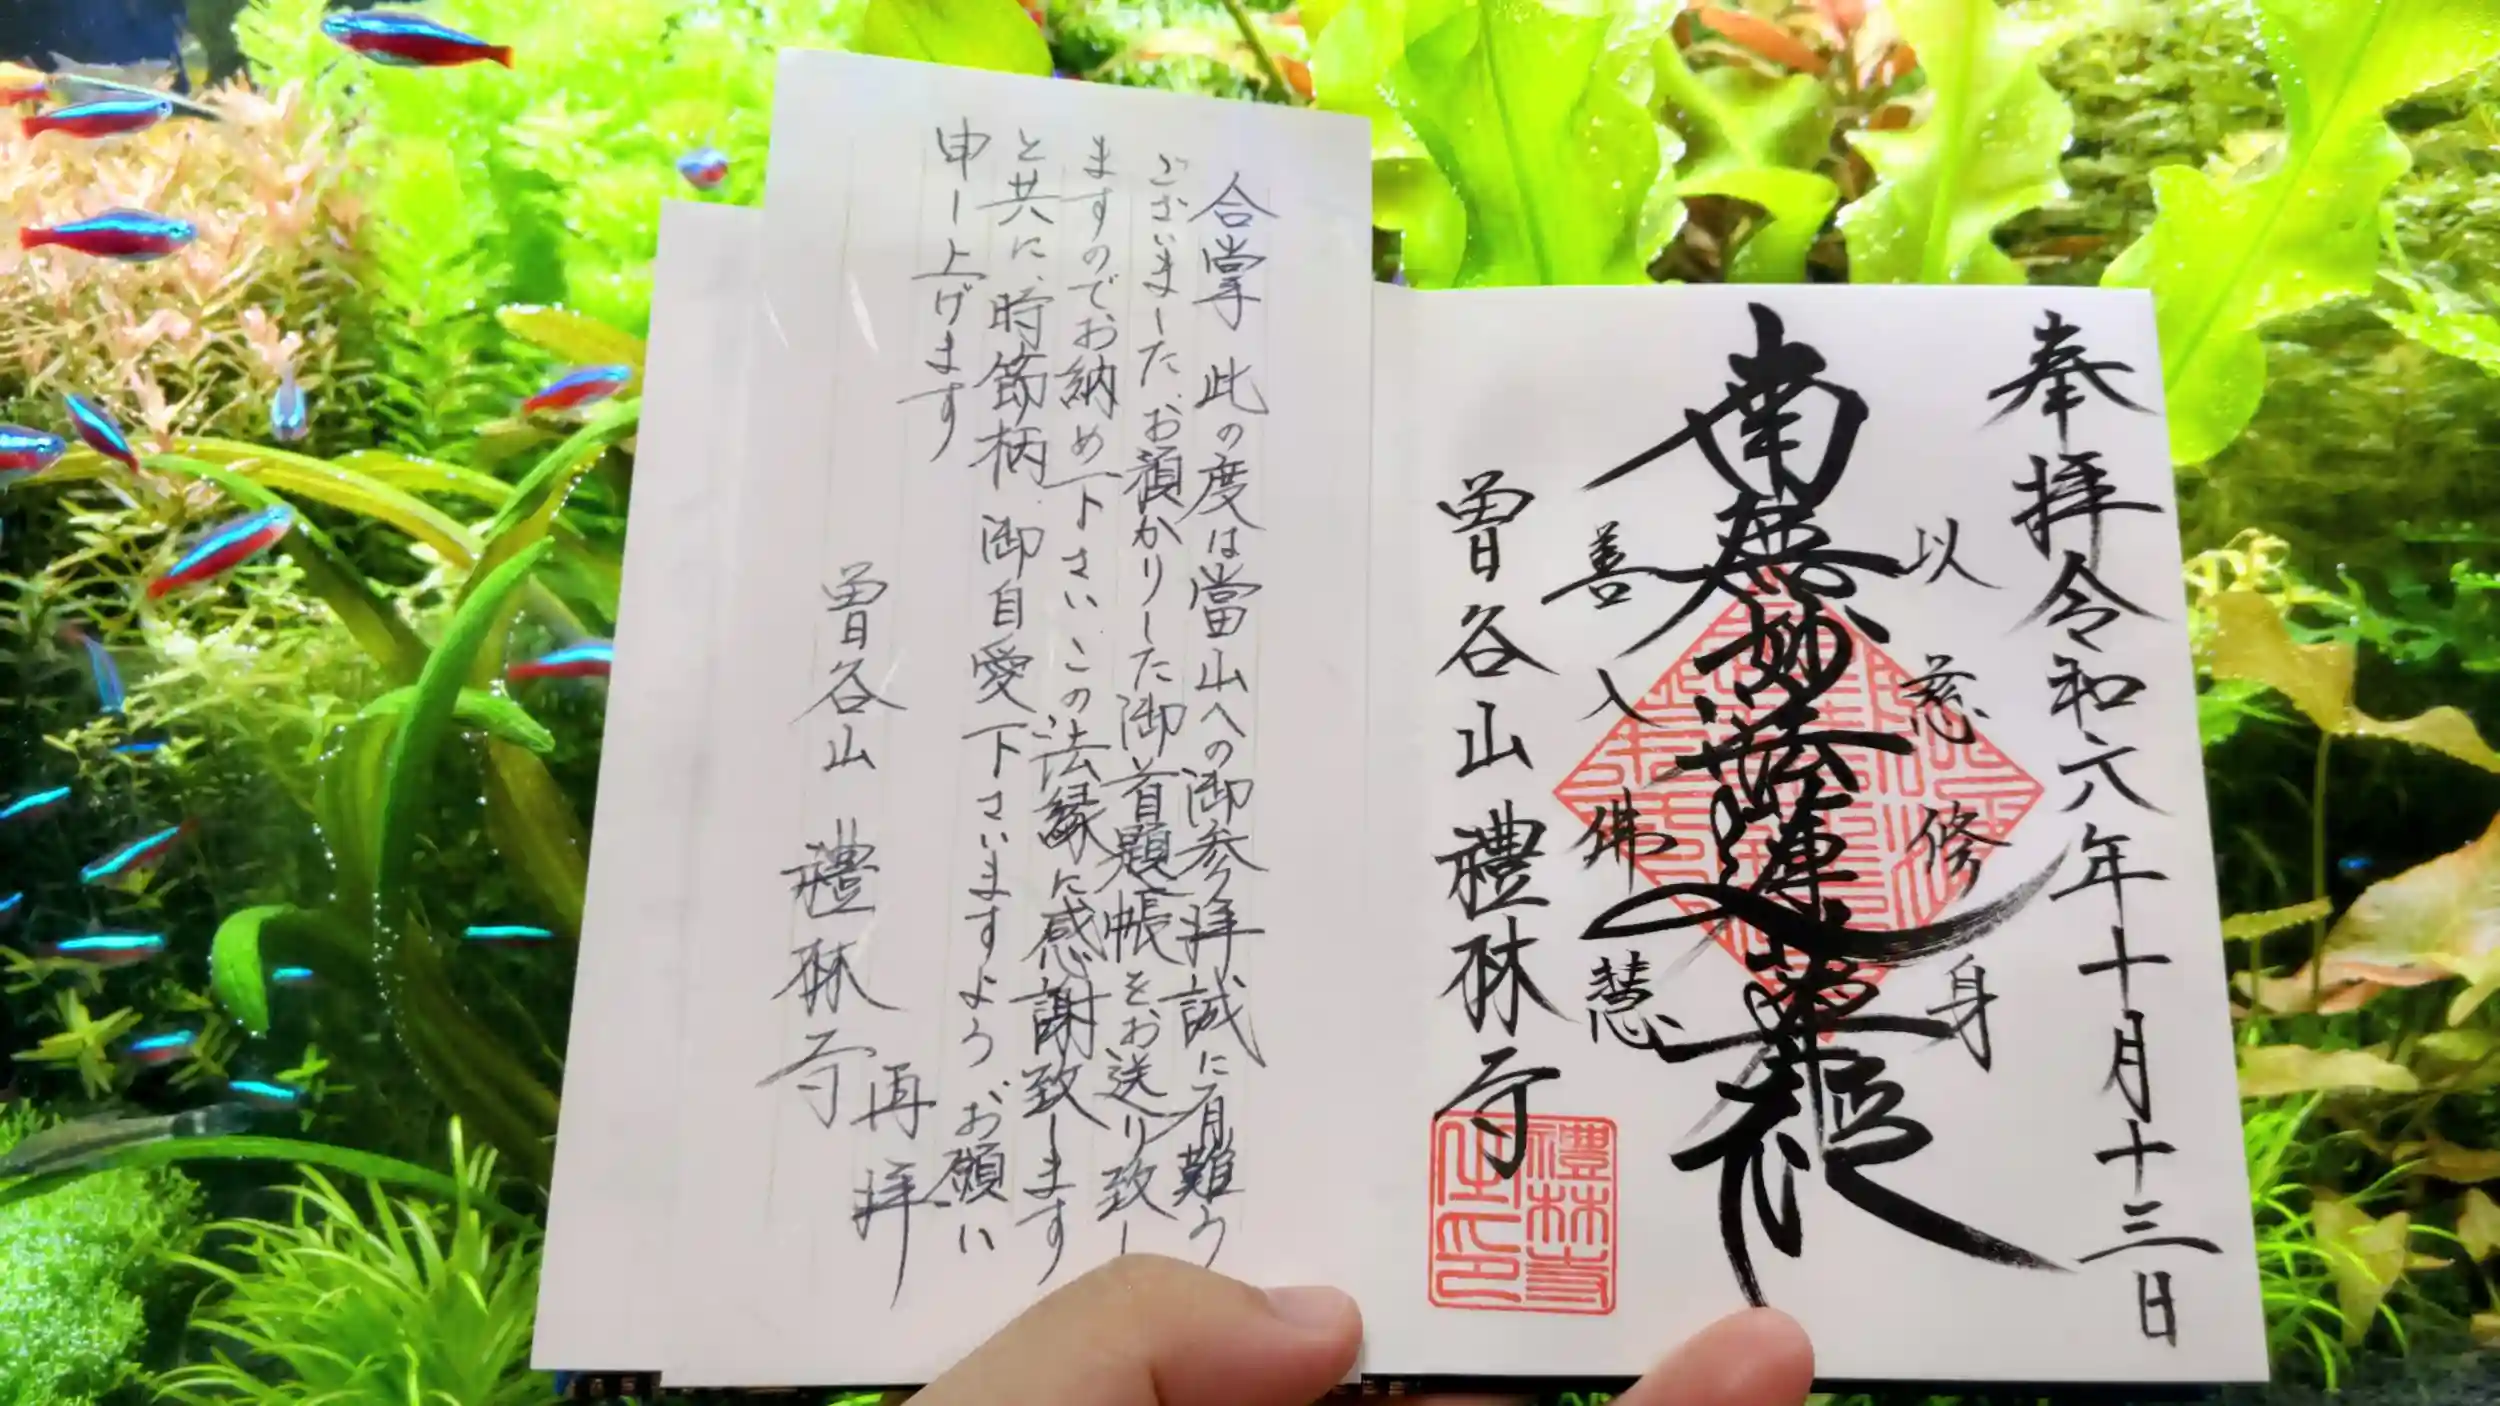 奉拝令和六年十月十三日
以慈修身
南無妙法蓮華経
善入佛慧
曽谷山禮林寺
禮林寺
合掌 此の度は當山への御参拝誠に有難う
ございました。お預かりした御首題帳をお送り致し
ますのでお納め下さい。この法縁に感謝致します
と共に、時節柄、御自愛下さいますよう お願い
申し上げます
曽谷山 禮林寺
再拝